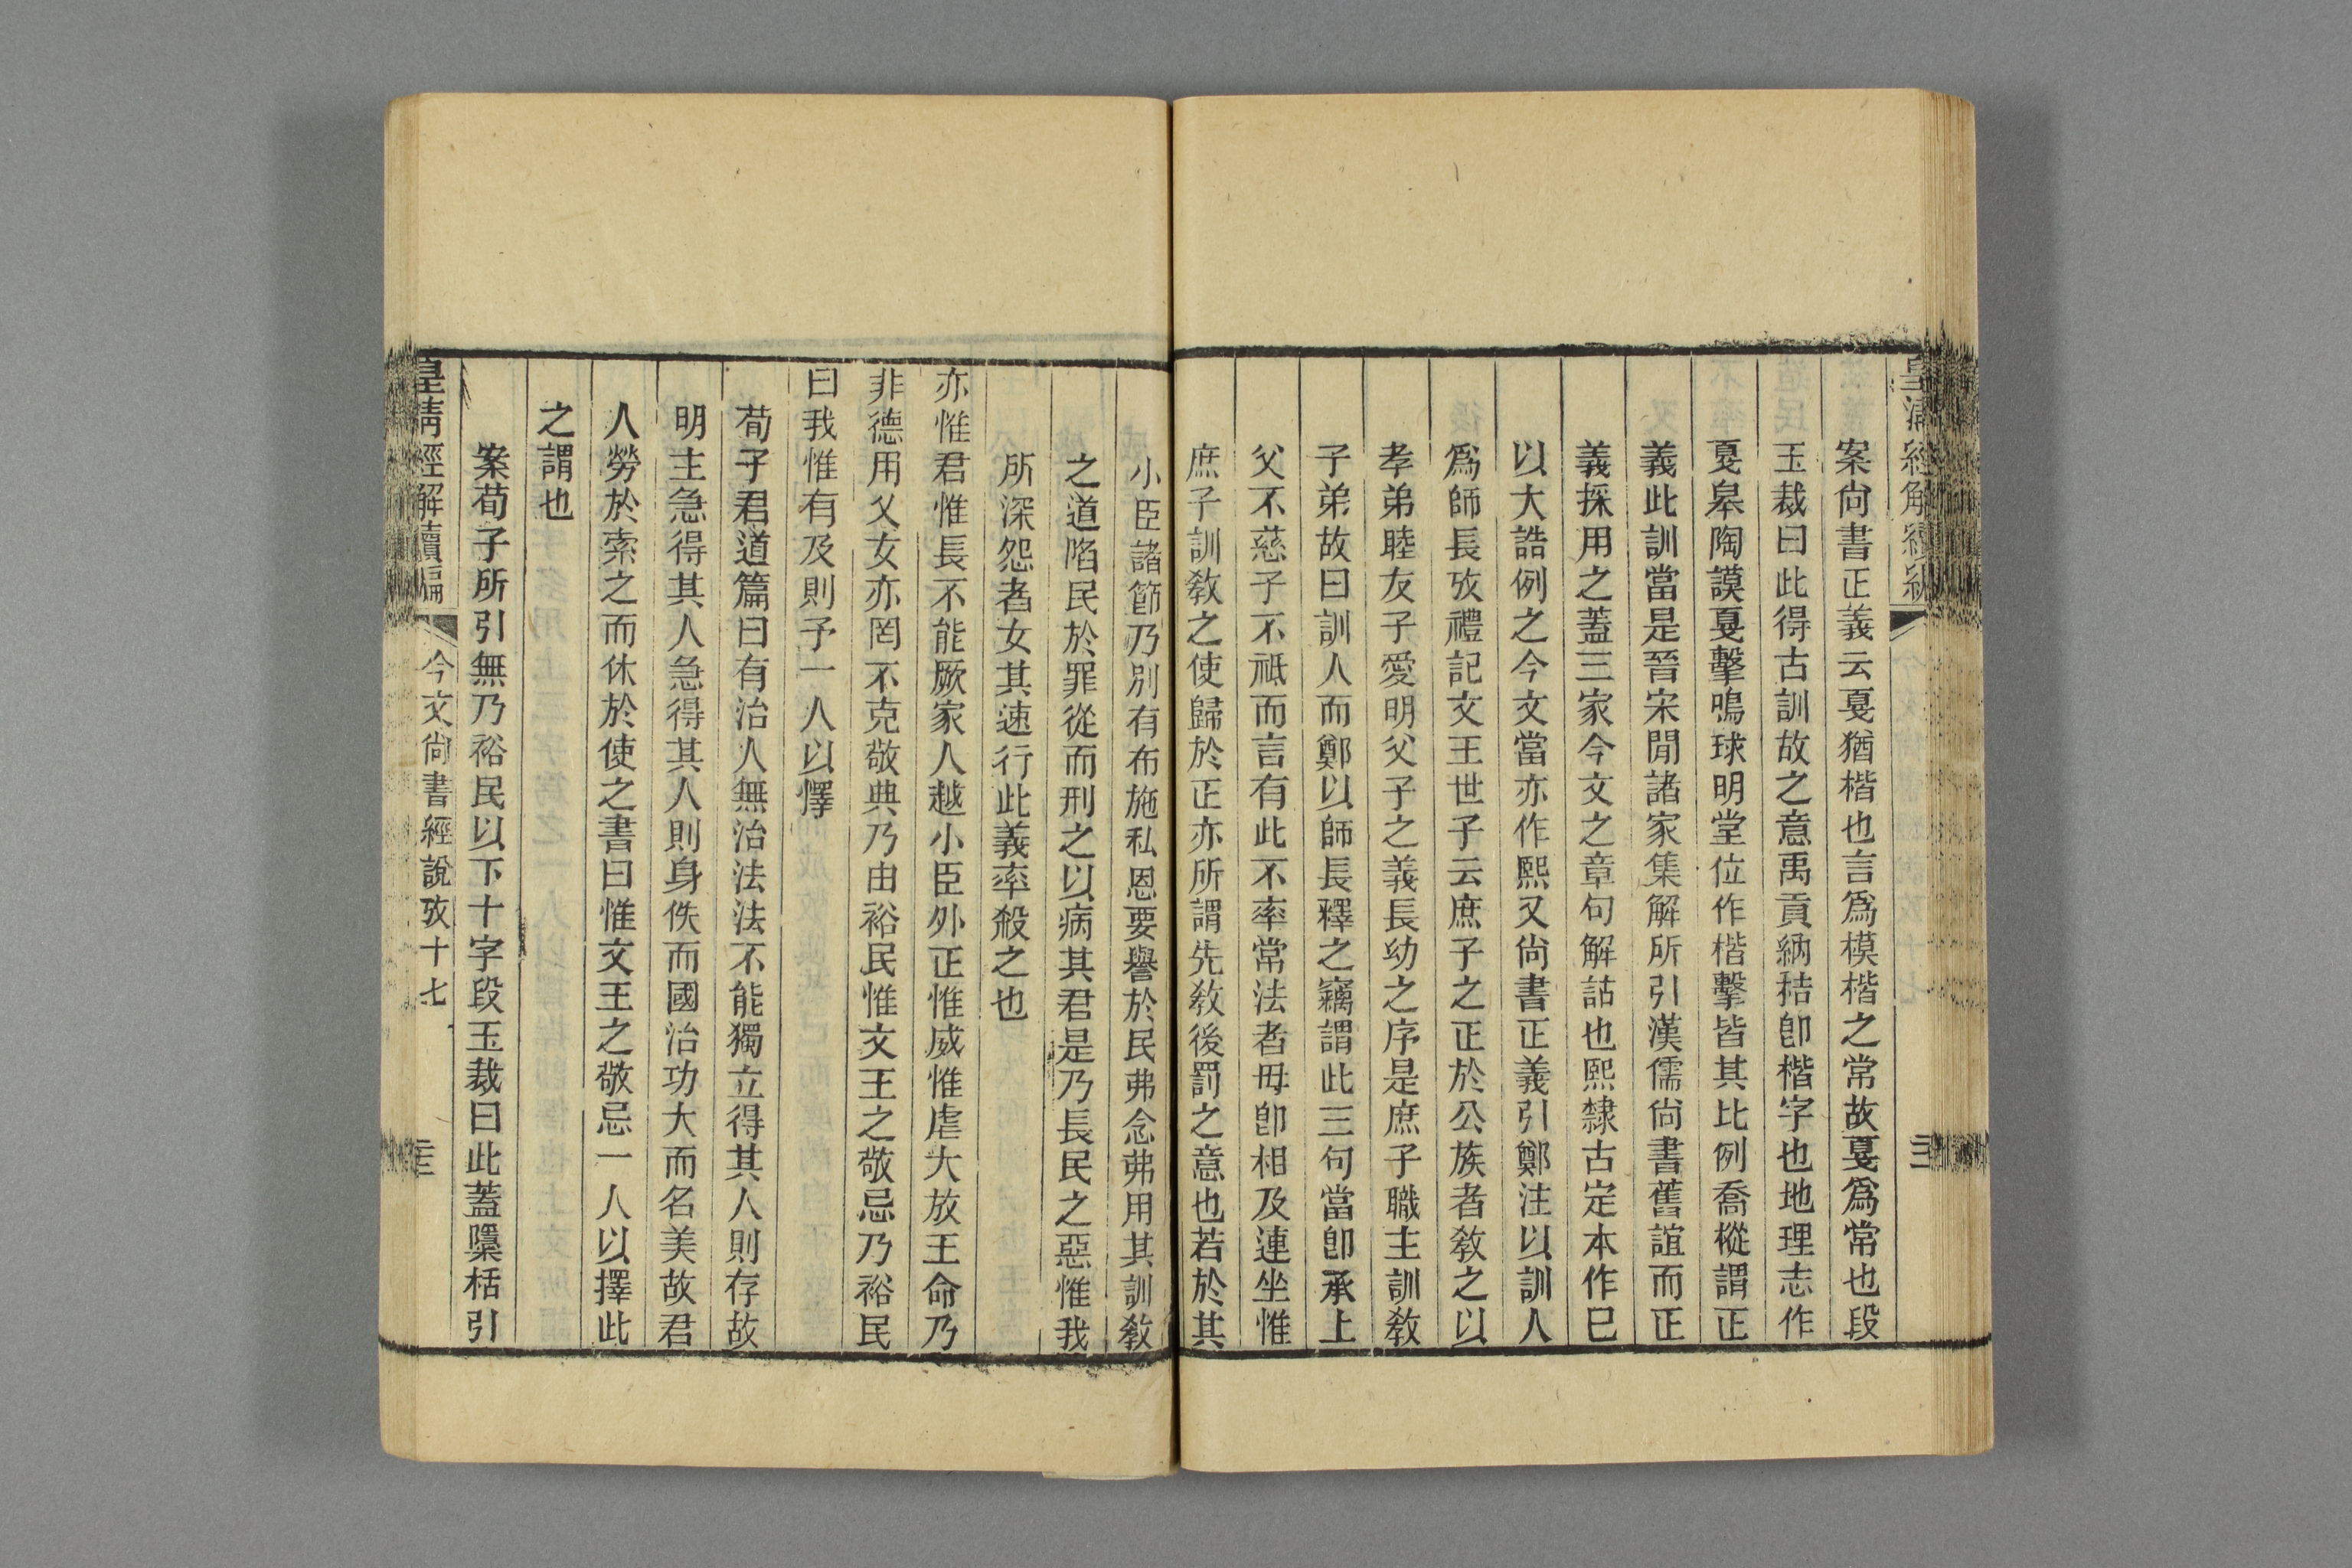 案尙書正義云戛猶楷也言爲模楷之常故戛爲常也段
玉裁曰此得古訓故之意禹貢納秸卽楷字也地理志作
戛皋陶謨戛擊鳴球明堂位作楷擊皆其比例喬樅謂正
義此訓當是晉宋閒諸家集解所引漢儒尙書舊誼而正
義採用之蓋三家今文之章句解詁也熙隸古定本作巳
以大誥例之今文當亦作熙又尙書正義引鄭注以訓人
爲師長攷禮記文王世子云庶子之正於公族者敎之以
孝弟睦友子愛明父子之義長幼之序是庶子職主訓敎
子弟故曰訓人而鄭以師長釋之竊謂此三句當卽承上
父不慈子不祗而言有此不率常法者毋卽相及連坐惟
庶子訓敎之使歸於正亦所謂先敎後罰之意也若於其
小臣諸節乃別有布施私恩要譽於民弗念弗用其訓敎
之道陷民於罪從而刑之以病其君是乃長民之惡惟我
所深怨者女其速行此義率殺之也
亦惟君惟長不能厥家人越小臣外正惟威惟虐大放王命乃
非德用乂女亦罔不克敬典乃由裕民惟文王之敬忌乃裕民
曰我惟有及則予一人以懌
荀子君道篇曰有治人無治法法不能獨立得其人則存故
明主急得其人急得其人則身佚而國治功大而名美故君
人勞於索之而休於使之書曰惟文王之敬忌一人以擇此
之謂也
案荀子所引無乃裕民以下十字段玉裁曰此蓋檃栝引
皇淸經解續編
今文尙書經說攷十七